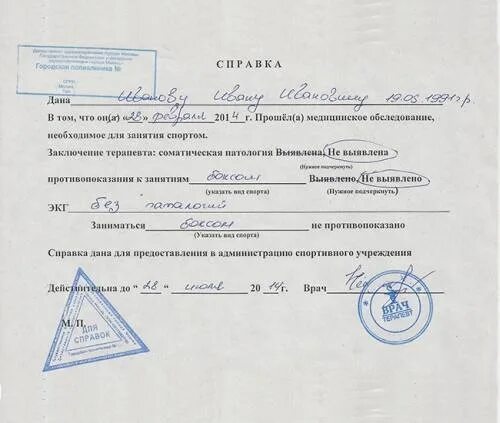 Департамент здравоохранения города Москвы
Государственное бюджетное учреждение
здравоохранения города Москвы
Городская поликлиника №
СПРАВКА
Дана Иванову Ивану Ивановичу 19.05.1991 г.р.
В том, что он(а) «28» февраля 2014 г. Прошёл(а) медицинское обследование,
необходимое для занятия спортом.
Заключение терапевта: соматическая патология Выявлена, Не выявлена
(Нужное подчеркнуть)
противопоказания к занятиям боксом Выявлено, Не выявлено
(указать вид спорта) (Нужное подчеркнуть)
ЭКГ без патологий
Заниматься боксом не противопоказано
(Указать вид спорта)
Справка дана для предоставления в администрацию спортивного учреждения
Действительна до “ 28 “ июля 20 14г. Врач
М. П.
ДЛЯ
СПРАВОК
ВРАЧ
ТЕРАПЕВТ